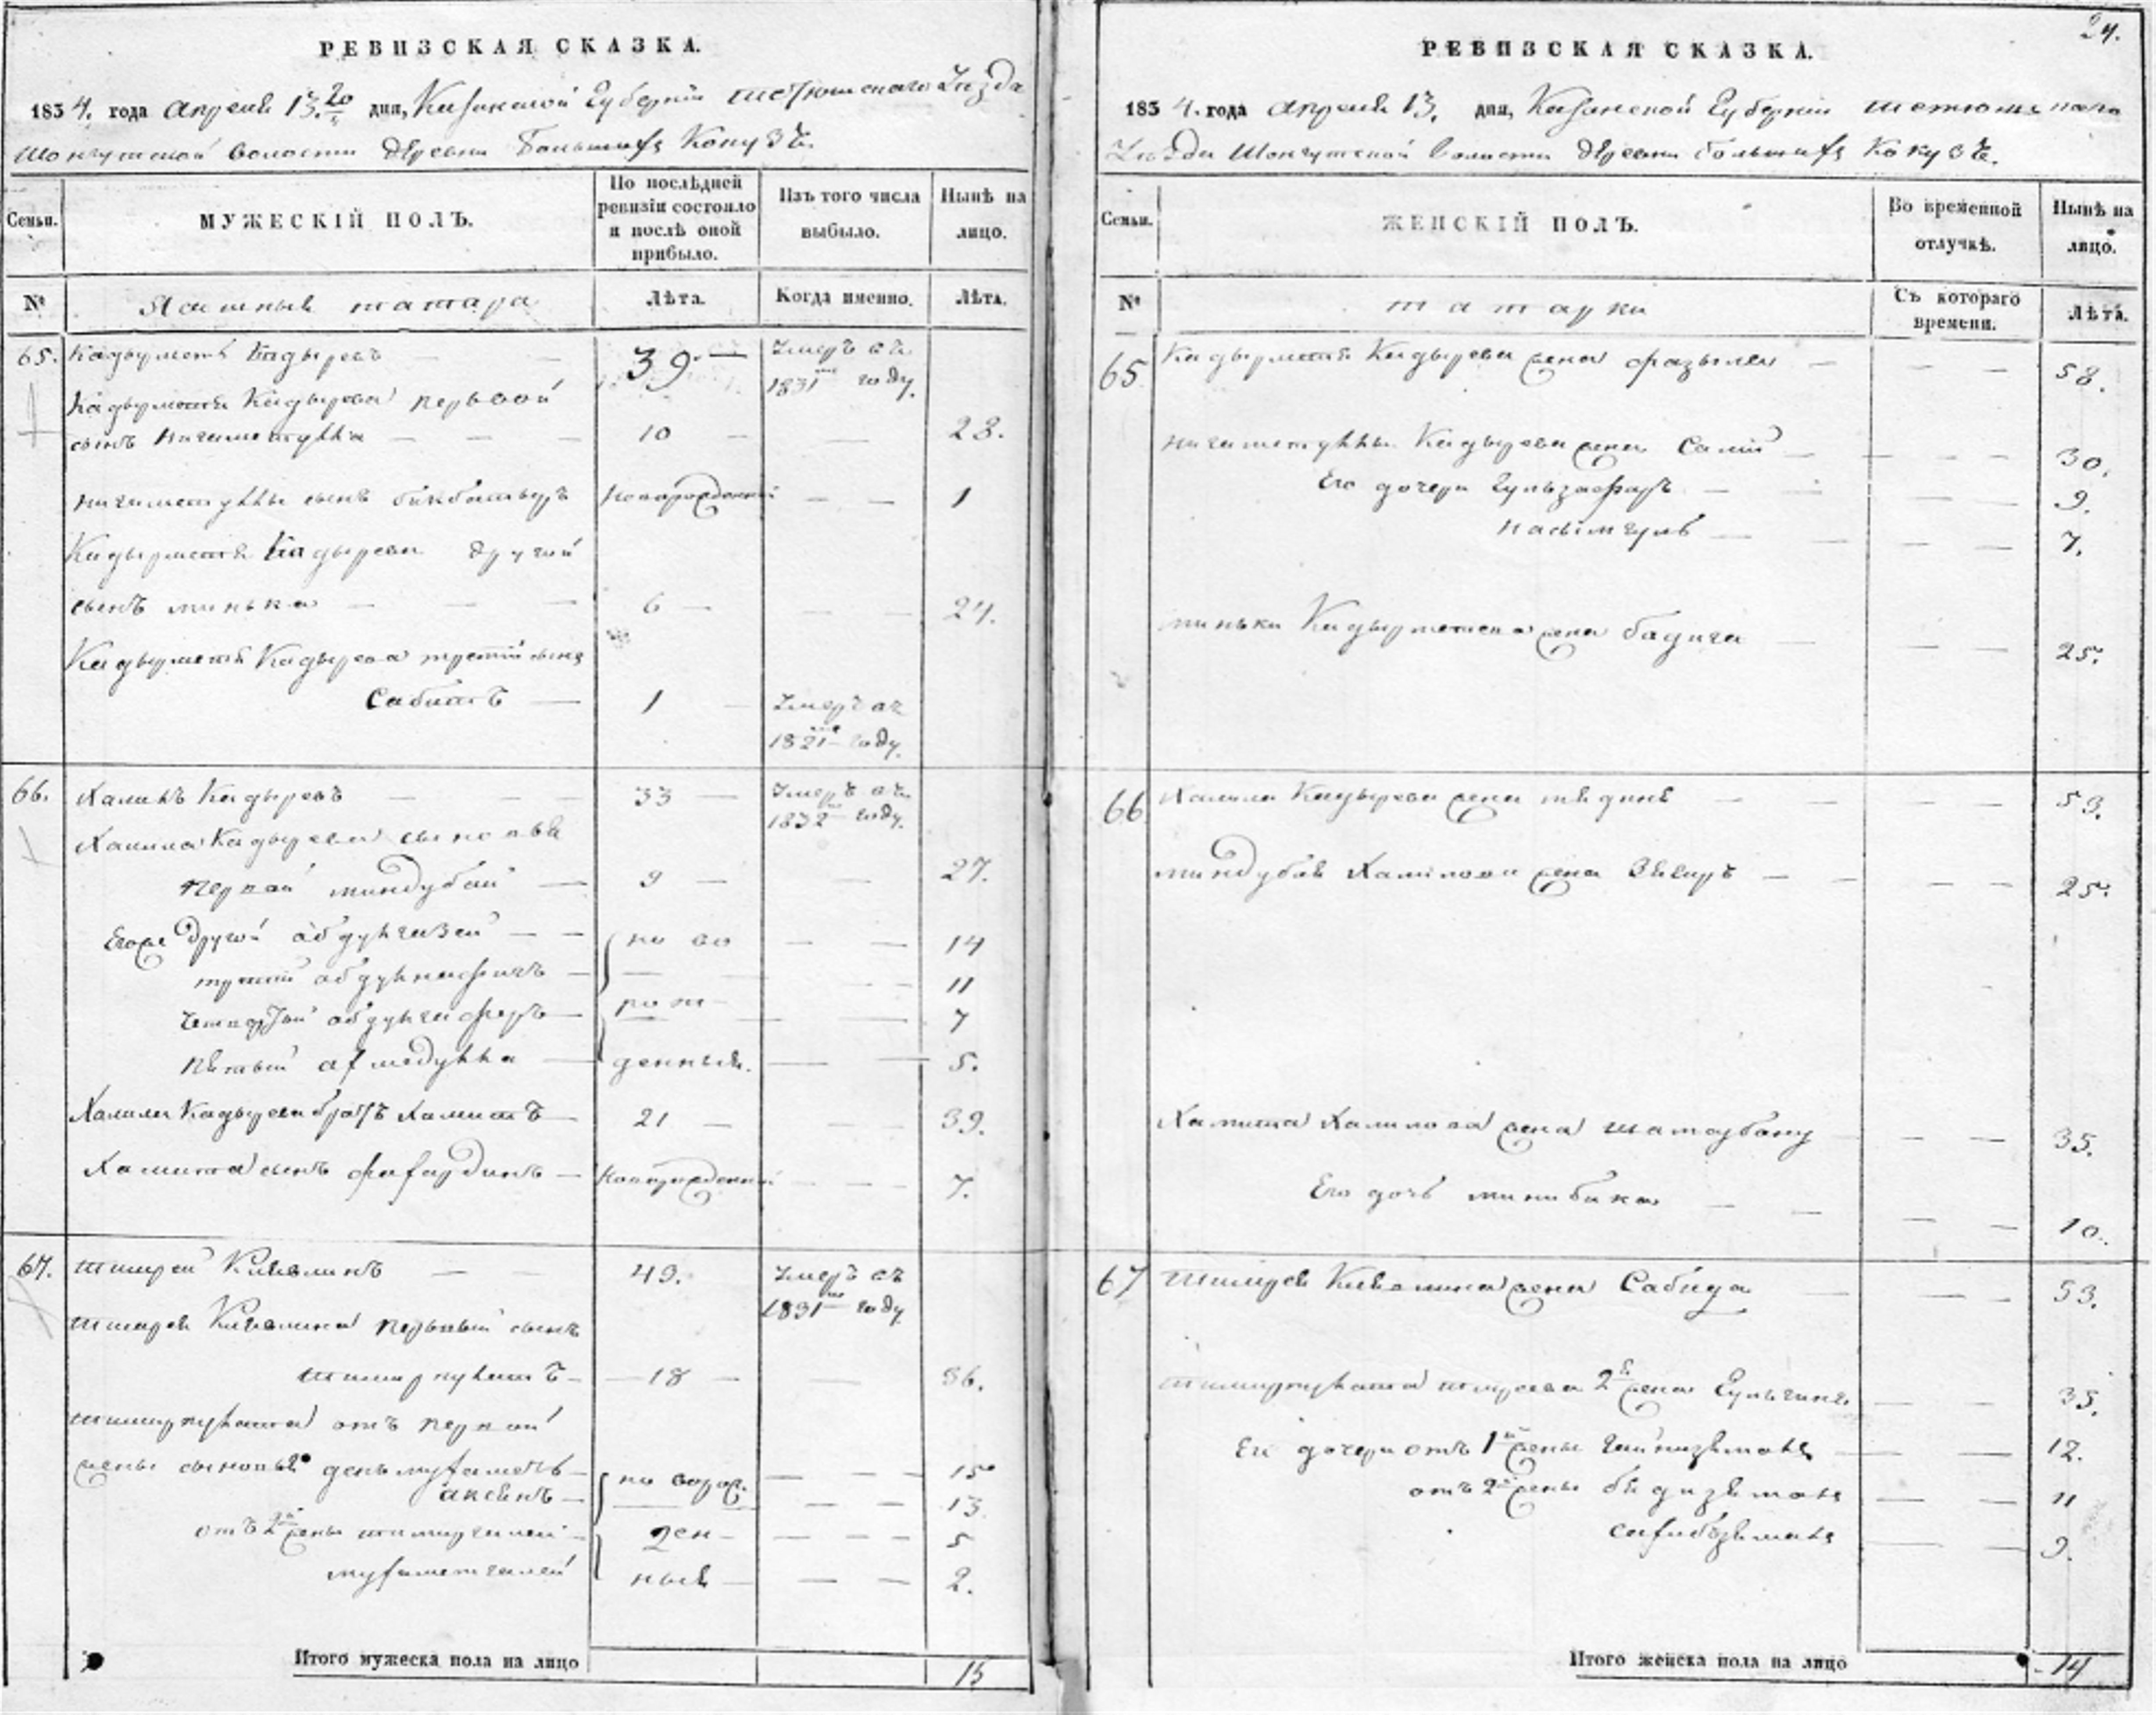 РЕВИЗСКАЯ СКАЗКА.
1834. года апреля 13. 20 дня, Казанской Губернiи Тетюшскаго Уѣзда
Шонгутской волости деревни Большихъ Кокузъ.
Семьи.
МУЖЕСКIЙ ПОЛЪ.
По послѣдней ревизiи состояло и послѣ оной прибыло.
Изъ того числа выбыло.
Нынѣ на лицо.
№
Ясашныя татара
Лѣта.
Когда именно.
Лѣта.
65. Кадырметь Кадыревъ 39. Умеръ въ 1831 году.
Кадырметя Кадырева первой
сынъ Нигаметулла 10 28.
Нигаметуллы сынъ Бикбатыръ Новорожденный 1
Кадырметя Кадырева другой
сынъ Минька 6 24.
Кадырметя Кадырева третiй сынъ
Сабитъ 1 Умеръ въ 1821 году.
66. Халилъ Кадыревъ 33 Умеръ въ 1832 году.
Халила Кадырева сыновья
первой Миндубай 9 27.
Егоже другой Абдулгазей ново 14
третiй Абдулнафикъ 11
четвертый Абдулгафаръ рож 7
пятый Ахмедулла денныя. 5.
Халила Кадырева братъ Хамитъ 21 39.
Хамита сынъ Фахардинъ Новорожденный 7.
67. Тимирей 49. Умеръ въ 1831 году
Тимирея первый сынъ
Тимирпулатъ 18 36.
Тимирпулата отъ первой
жены сыновья новорож 15
Аксянъ 13
отъ 2й жены Тимиргалей ден 5
Мухаметгалей ныя 2.
Итого мужеска пола на лицо 15
24.
РЕВИЗСКАЯ СКАЗКА.
1834. года апреля 13. дня, Казанской Губернiи Тетюшскаго
Уѣзда Шонгутской волости деревни Большихъ Кокузъ.
Семьи.
ЖЕНСКIЙ ПОЛЪ.
Во временной отлучкѣ.
Нынѣ на лицо.
№
татарки
Съ котораго времени.
Лѣта.
65 Кадырметя Кадырева жена Фазыля 58.
Нигаметуллы Кадырева жена 30.
Его дочери Гульзафаръ 9.
Насымгуль 7.
Миньки Кадырметева жена Бадига 25.
66 Халила Кадырева жена 53.
Миндубая Халилова жена 25.
Хамита Халилова жена Шамсубану 35.
Его дочь Минибика 10.
67 Тимирея жена Сабида 53.
Тимирпулата Тимреева 2я жена 35.
Его дочери отъ 1й жены 12.
отъ 2й жены Бядизямалъ 11
Сахибзямалъ 9.
Итого женска пола на лицо 14